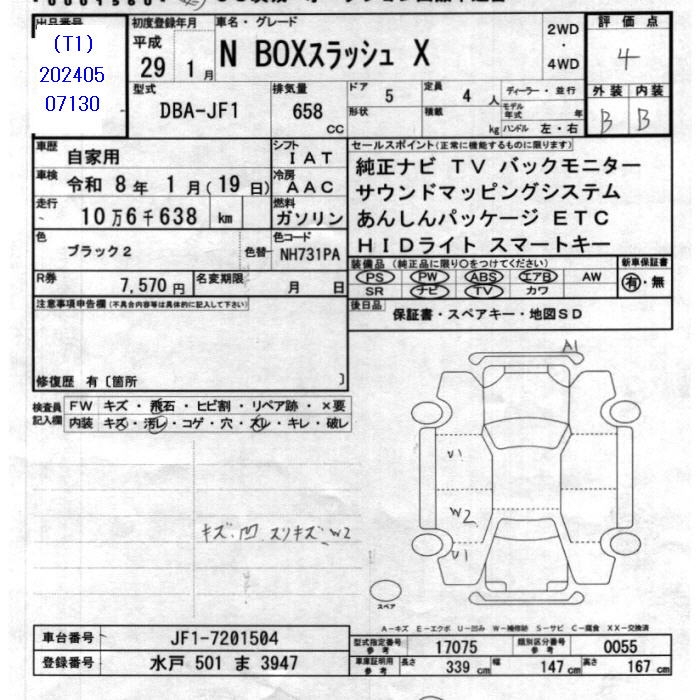 出品番号
(T1)
202405
07130
初度登録年月
平成
29 1月
車名・グレード
N BOXスラッシュ X
2WD
・
4WD
評価点
4
外装 内装
B B
型式
DBA-JF1
排気量
658
cc
ドア 5
形状
定員 4 人
積載 kg
ディーラー・並行
モデル年式 年
ハンドル 左・右
車歴 自家用
シフト IAT
車検 令和 8年 1月(19日)
冷房 AAC
走行 10万6千638 km
燃料 ガソリン
色 ブラック2
色替
色コード NH731PA
R券 7,570円
名変期限 月 日
セールスポイント(正常に機能するものに限ります)
純正ナビ TV バックモニター
サウンドマッピングシステム
あんしんパッケージ ETC
HIDライト スマートキー
装備品(純正品に限り○をつけてください)
PS PW ABS エアB AW
SR ナビ TV カワ
新車保証書
有・無
後日品
保証書・スペアキー・地図SD
注意事項申告欄(不具合内容等は具体的に記入して下さい)
修復歴 有〔箇所 〕
検査員記入欄
FW キズ・飛石・ヒビ割・リペア跡・×要
内装 キズ・汚レ・コゲ・穴・スレ・キレ・破レ
キズ、凹 スリキズ W2
A1
U1
W2
U1
スペア
A-キズ E-エクボ U-凹み W-補修跡 S-サビ C-腐食 XX-交換済
車台番号 JF1-7201504
登録番号 水戸 501 ま 3947
型式指定番号 参考 17075
類別区分番号 参考 0055
車庫証明用 参考 長さ 339cm 幅 147cm 高さ 167cm